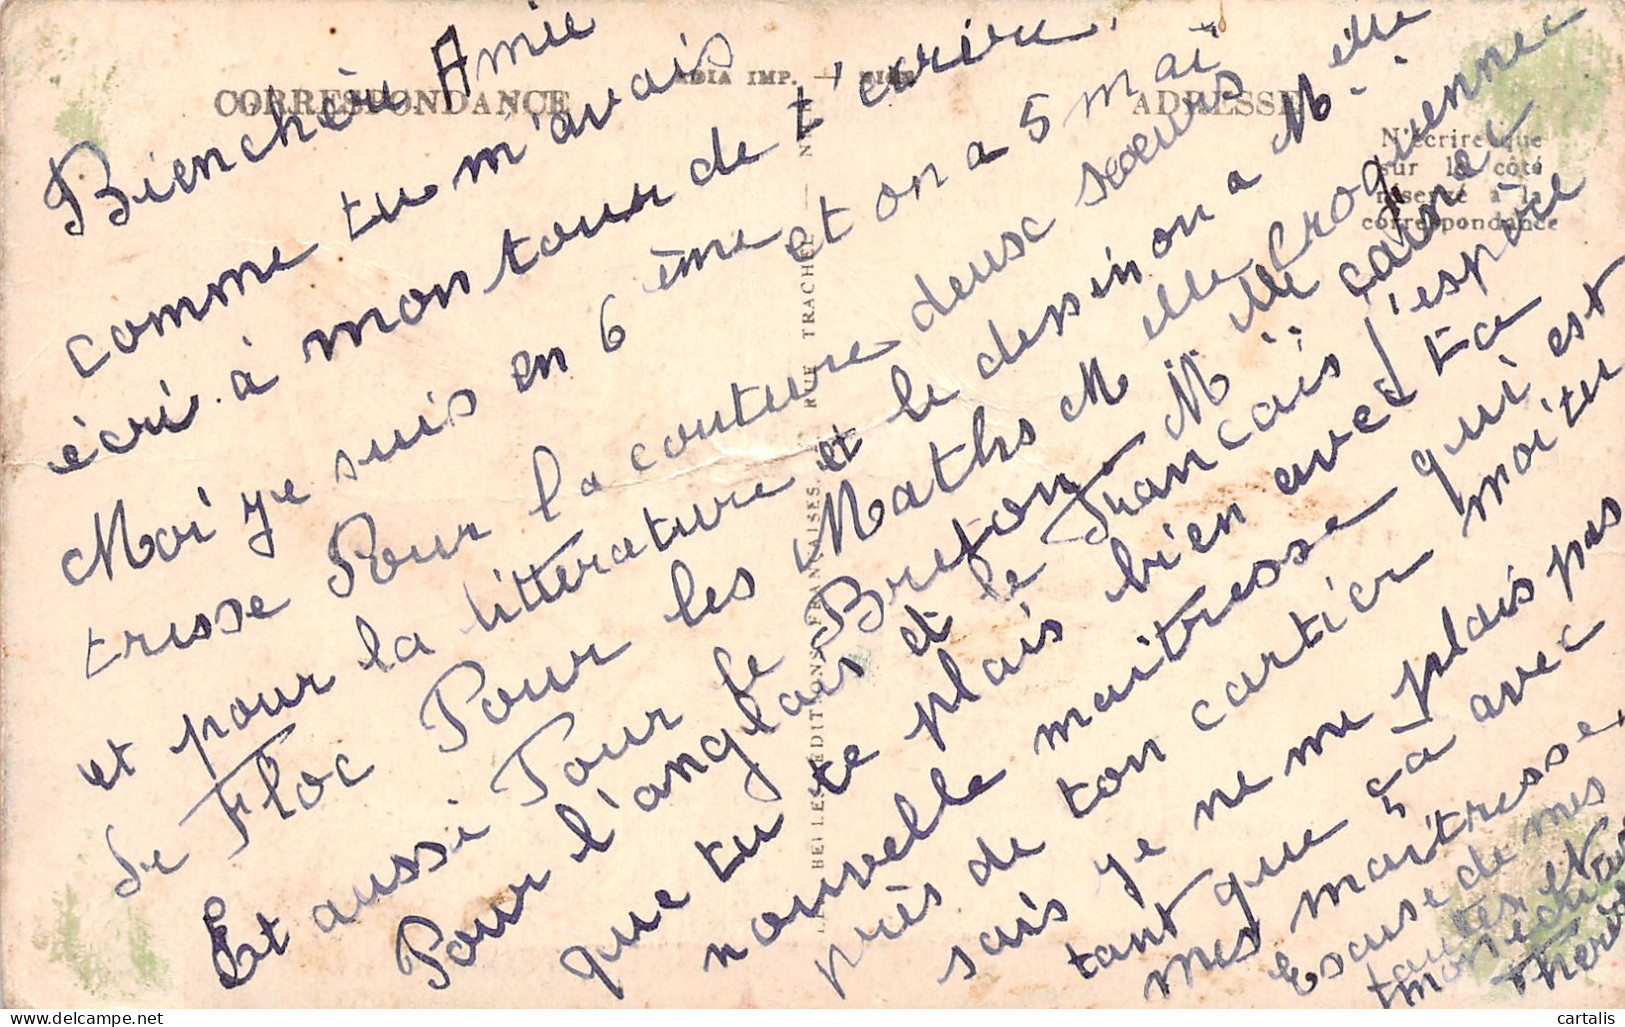 Bien chère Amie
comme tu m'avais
écri à mon tour de t'écrire.
Moi ye suis en 6 ème et on a 5 maî
tresse Pour la couture deux soeurs
et pour la littérature et le dessin on a M.elle
Le Floc Pour les Maths Melle Croquennec
Et aussi Pour le Breton Melle Carinec
Pour l'anglais et le Francais j'espère
que tu te plais bien avec ta
nouvelle maitresse qui est
près de ton cartier moi tu
sais ye ne me plais pas
tant que ça avec
mes maitresse.
Excuse de mes
fautes et
mon écriture
Thérèse
CORRESPONDANCE
ADIA IMP. — NICE
ADRESSE
N'écrire que
sur le côté
réservé à la
correspondance
BELLES ÉDITIONS FRANÇAISES RUE TRACHEL — NICE
cartalis